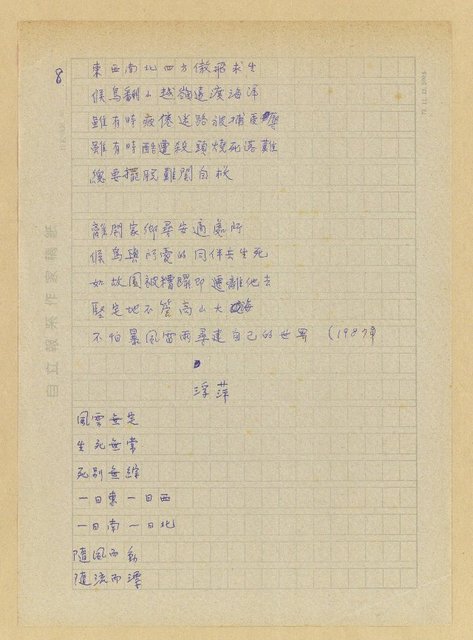 8
東西南北四方傲飛求生
候鳥翻山越嶺遠渡海洋
雖有時疲倦迷路被捕
雖有時酷遭殺頭燒死落難
總要擺脫難關自救
離開家鄉尋安適處所
候鳥與所愛的同伴共生死
如故園被糟蹋即遷離他去
堅定地不管高山大海
不怕暴風雷雨尋建自己的世界 (1987年
浮萍
風雲無定
生死無常
死別無蹤
一日東一日西
一日南一日北
隨風而動
隨流而漂
自立報系作家稿紙